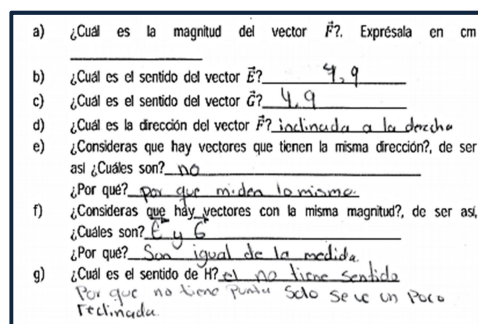 a) ¿Cuál es la magnitud del vector F⃗?. Exprésala en cm
b) ¿Cuál es el sentido del vector E⃗? 4,9
c) ¿Cuál es el sentido del vector G⃗? 4,9
d) ¿Cuál es la dirección del vector F⃗? inclinada a la derecha
e) ¿Consideras que hay vectores que tienen la misma dirección?, de ser
así ¿Cuáles son? no
¿Por qué? por que miden lo mismo
f) ¿Consideras que hay vectores con la misma magnitud?, de ser así,
¿Cuáles son? E⃗ y G⃗
¿Por qué? Son igual de la medida
g) ¿Cuál es el sentido de H? el no tiene sentido
Por que no tiene punta solo se ve un poco
reclinada